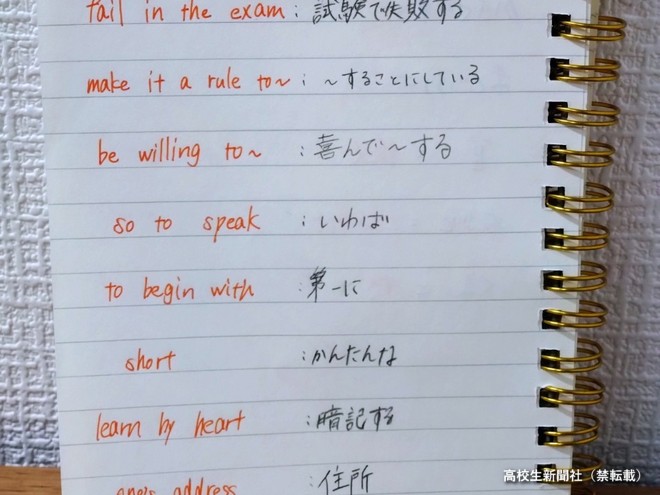 fail in the exam : 試験で失敗する
make it a rule to~ : ~することにしている
be willing to~ : 喜んで~する
so to speak : いわば
to begin with : 第一に
short : かんたんな
learn by heart : 暗記する
one's address : 住所
高校生新聞社（禁転載）